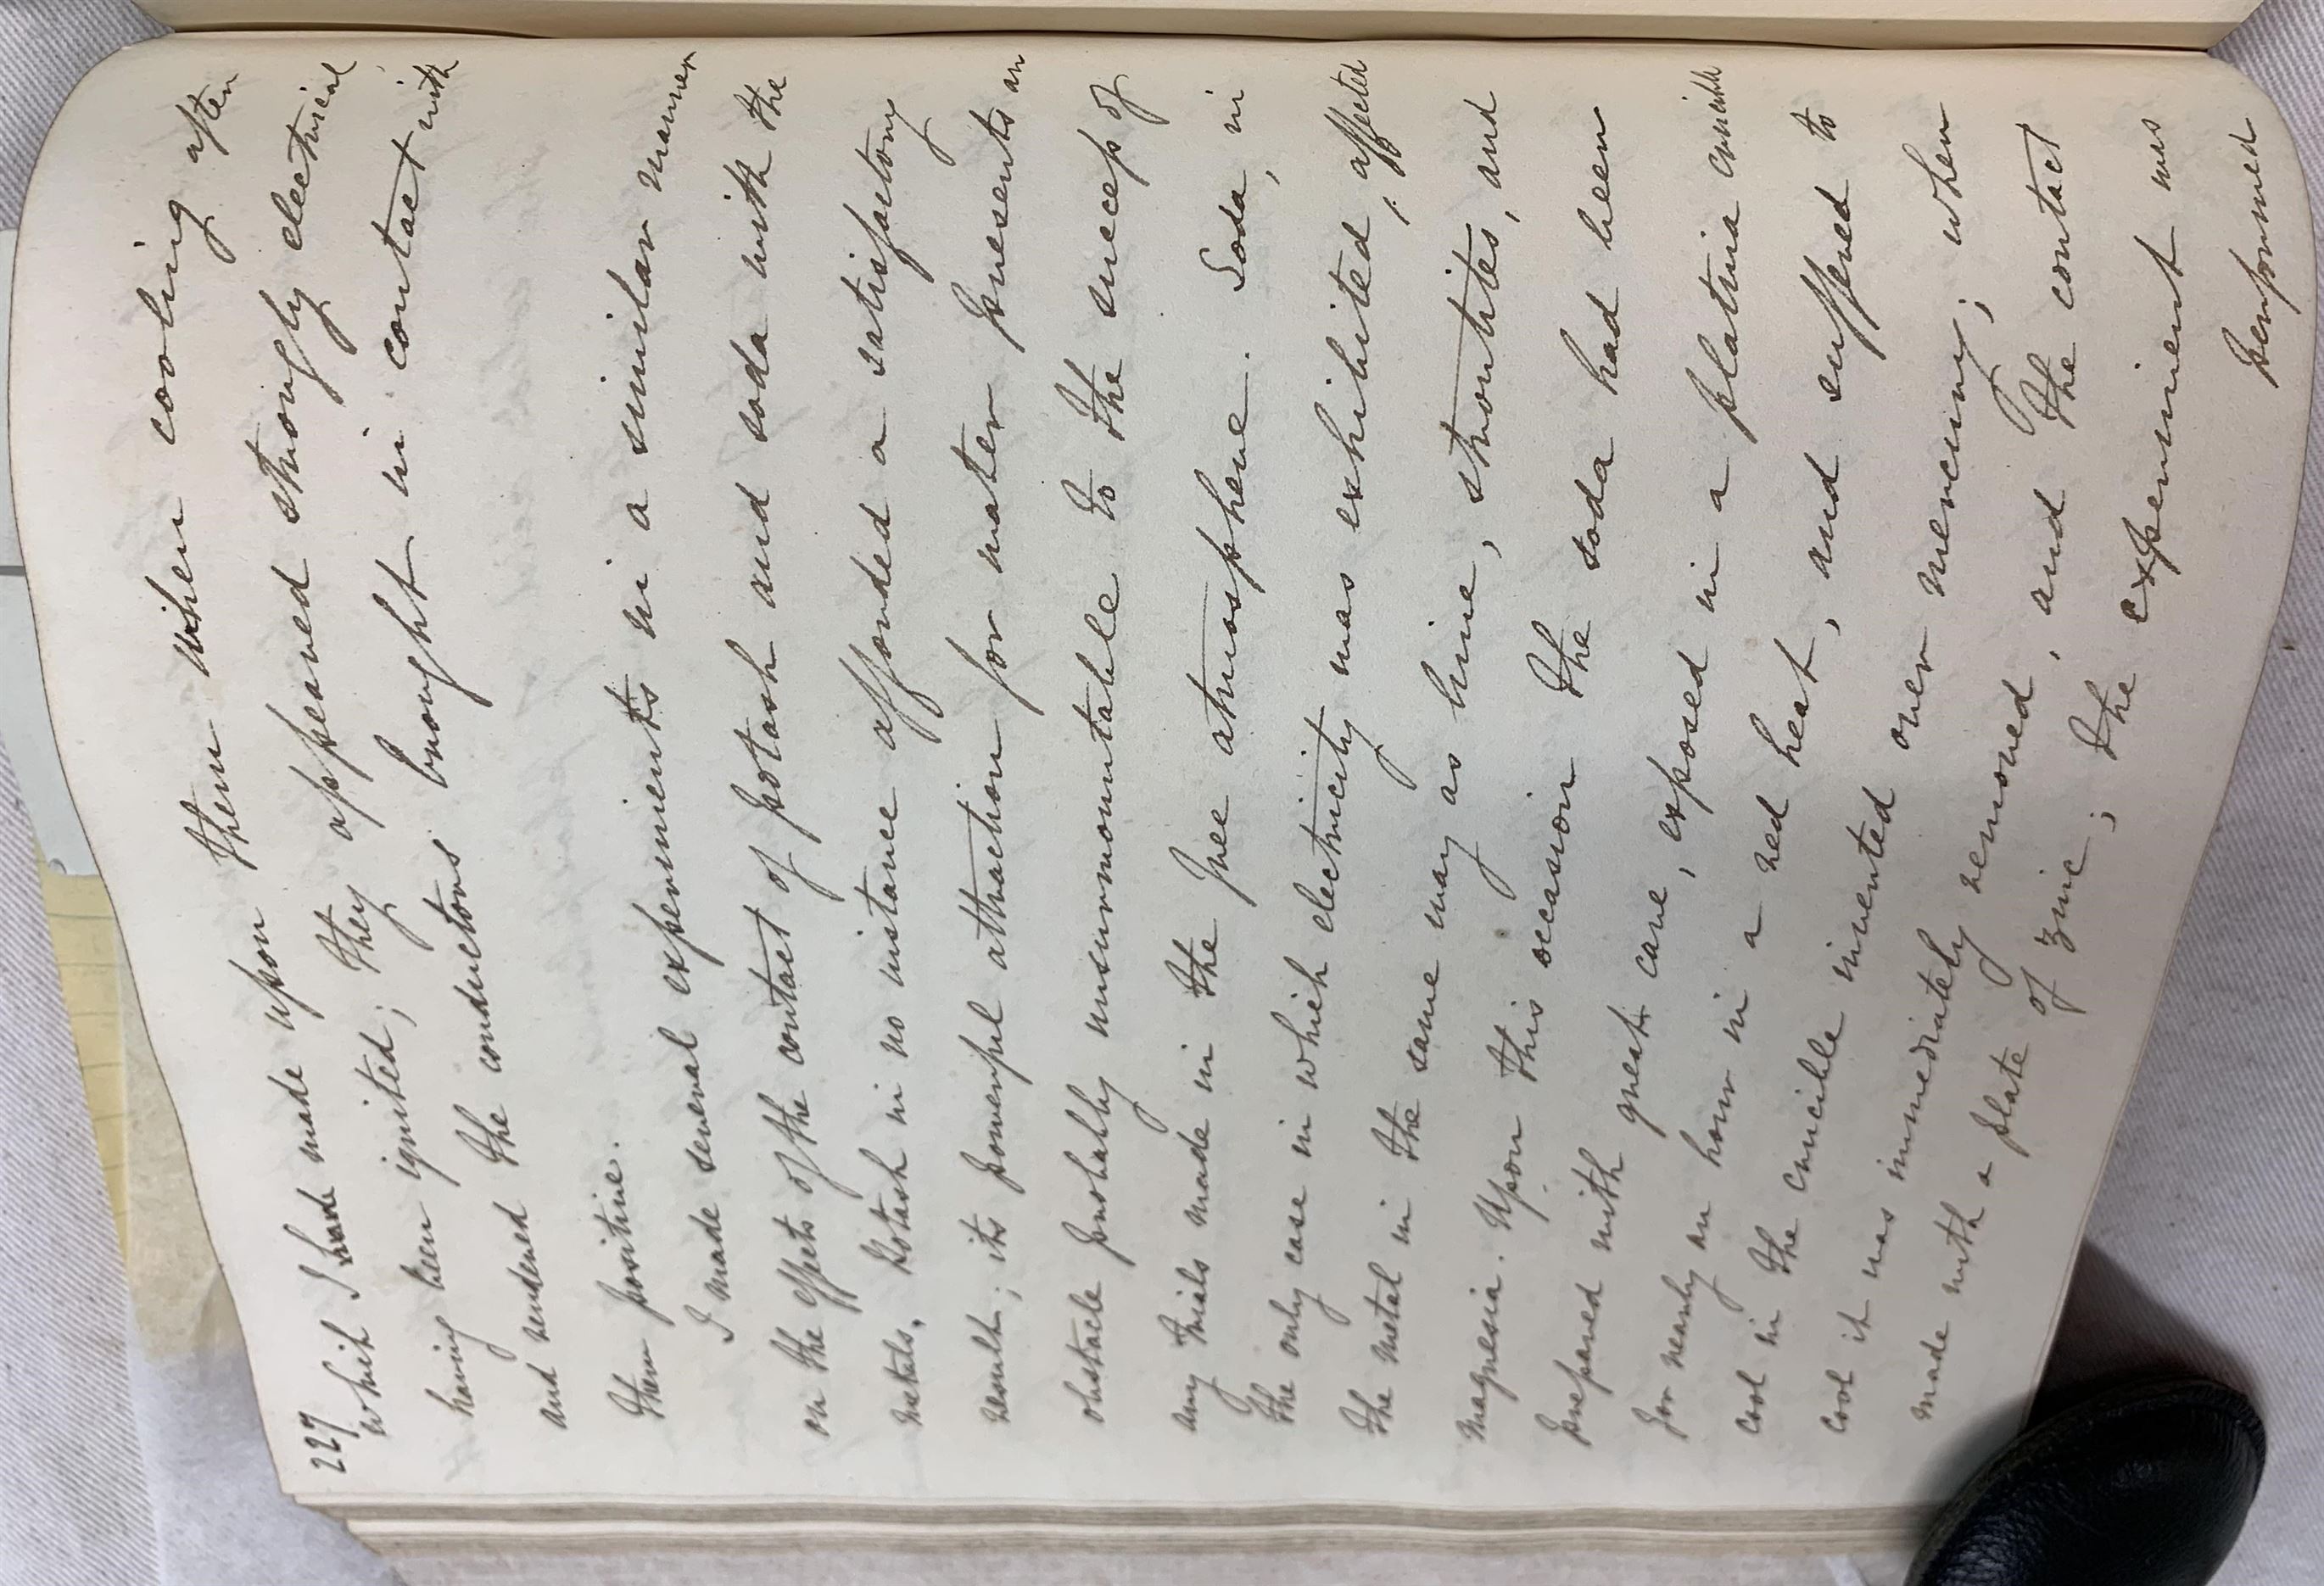 227
which I have made upon them when cooling after
having been ignited; they appeared strongly electrical
and rendered the conductors brought in contact with
them positive.
I made several experiments in a similar manner
on the effects of the contact of potash and soda with the
metals. Potash in no instance afforded a satisfactory
result; its powerful attraction for water presents an
obstacle probably unsurmountable to the success of
any trials made in the free atmosphere. Soda, in
the only case in which electricity was exhibited, affected
the metal in the same way as lime, strontites, and
magnesia. Upon this occasion the soda had been
prepared with great care, exposed in a platina crucible
for nearly an hour in a red heat, and suffered to
cool in the crucible inverted over mercury; when
cool it was immediately removed, and the contact
made with a plate of zinc; the experiment was
performed